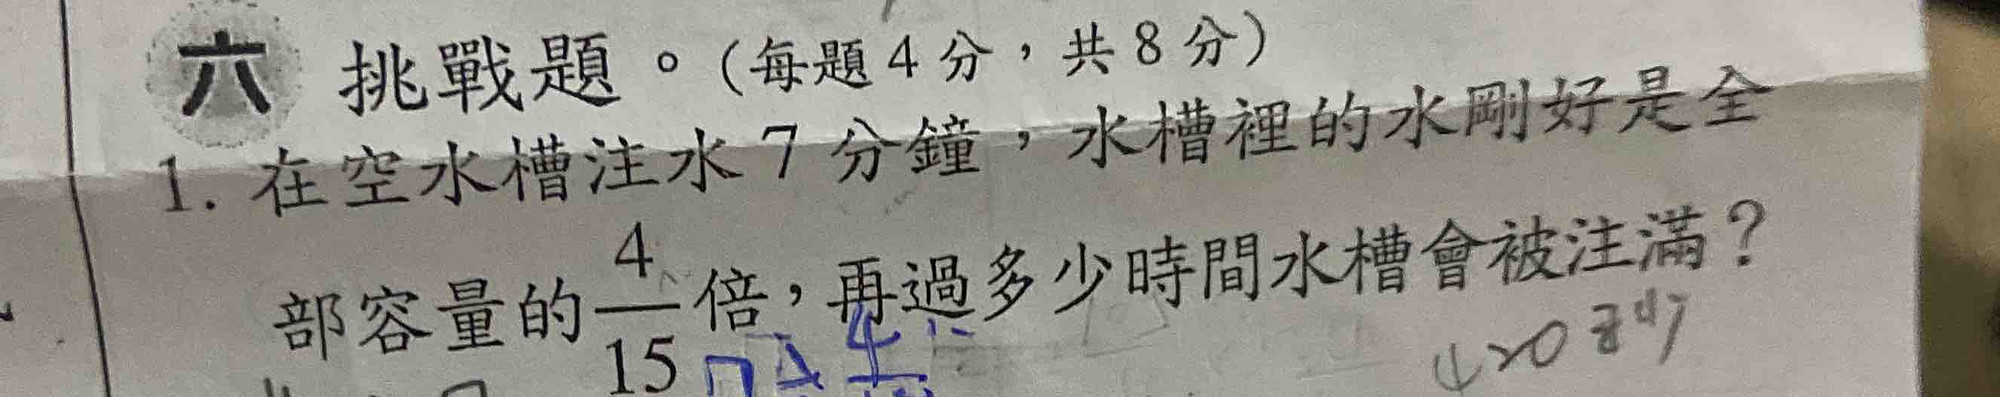 六 挑戰題。(每題4分，共8分)
1. 在空水槽注水7分鐘，水槽裡的水剛好是全
部容量的4/15倍，再過多少時間水槽會被注滿？